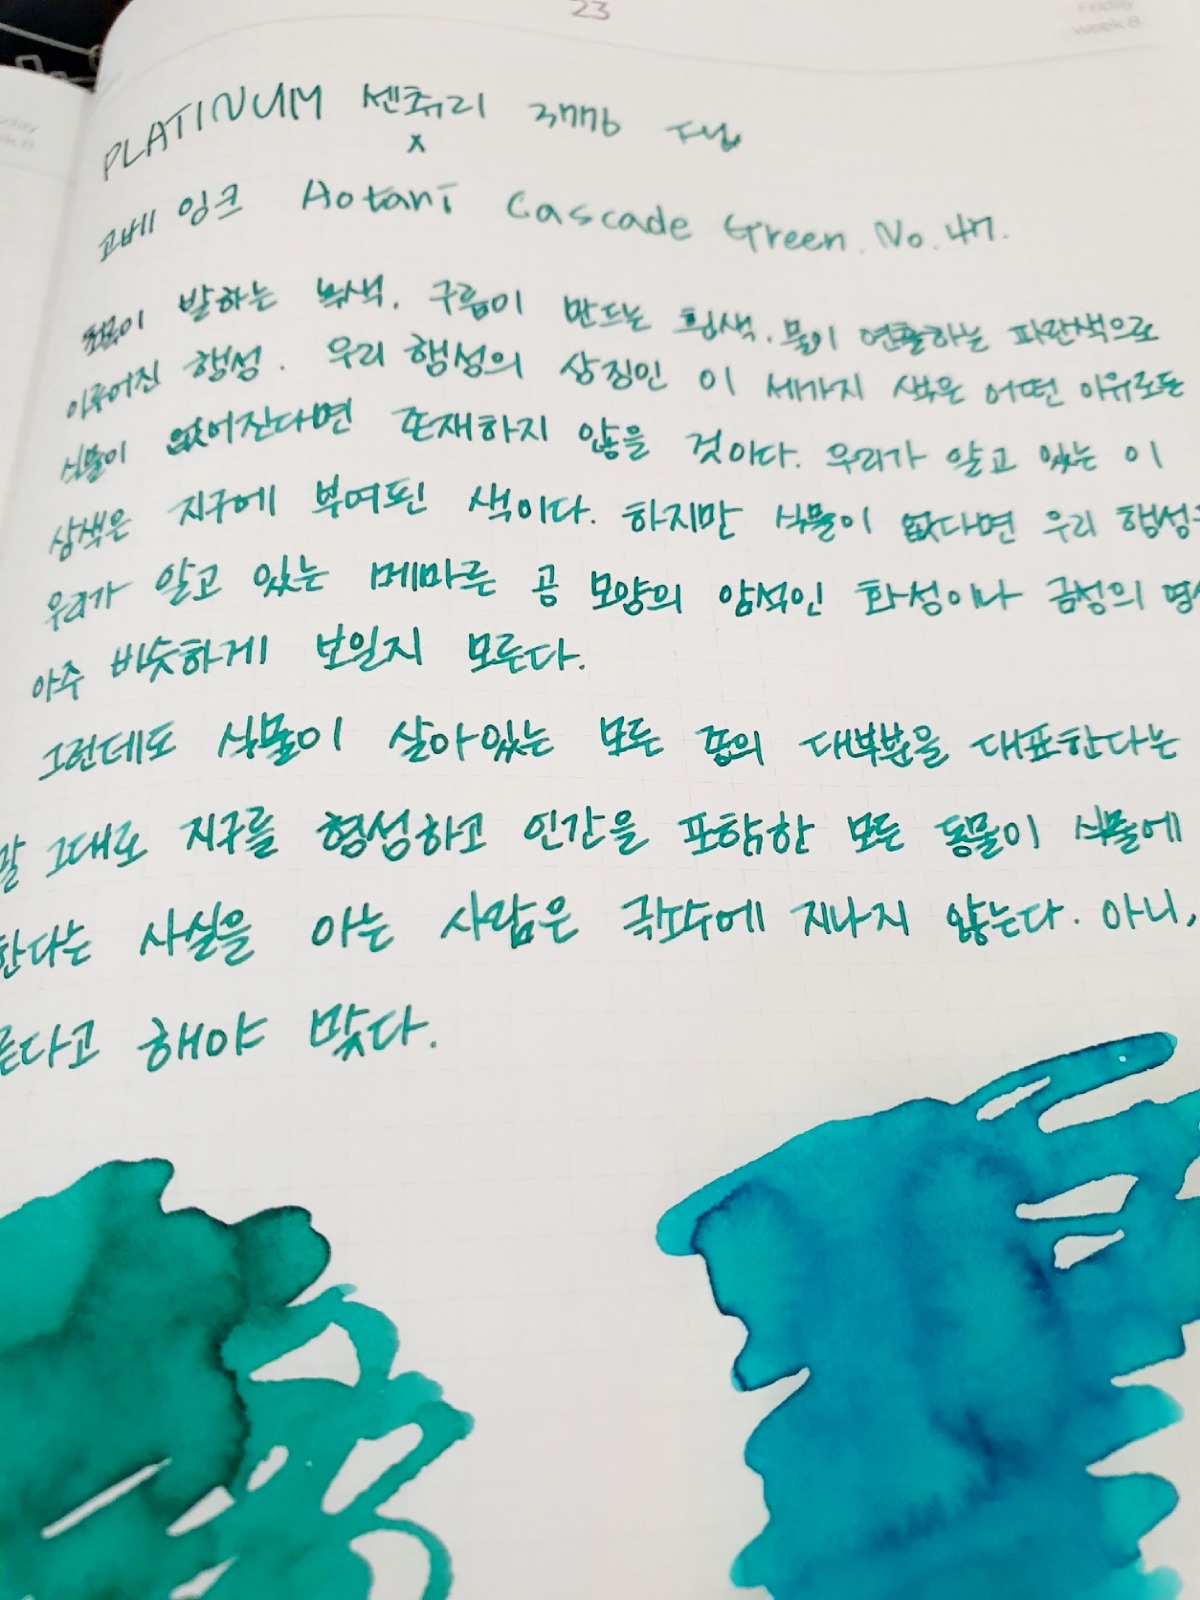 23
Friday
week 8
PLATINUM 센츄리 3776 F닙
x
고베 잉크 Aotani Cascade Green. No. 47.
식물이 발하는 녹색. 구름이 만드는 흰색. 물이 연출하는 파란색으로
이루어진 행성. 우리 행성의 상징인 이 세가지 색은 어떤 이유로든
식물이 없어진다면 존재하지 않을 것이다. 우리가 알고 있는 이
삼색은 지구에 부여된 색이다. 하지만 식물이 없다면 우리 행성
우리가 알고 있는 메마른 공 모양의 암석인 화성이나 금성의
아주 비슷하게 보일지 모른다.
그런데도 식물이 살아있는 모든 것의 대부분을 대표한다는
말 그대로 지구를 형성하고 인간을 포함한 모든 동물이 식물에
한다는 사실을 아는 사람은 극소수에 지나지 않는다. 아니,
른다고 해야 맞다.